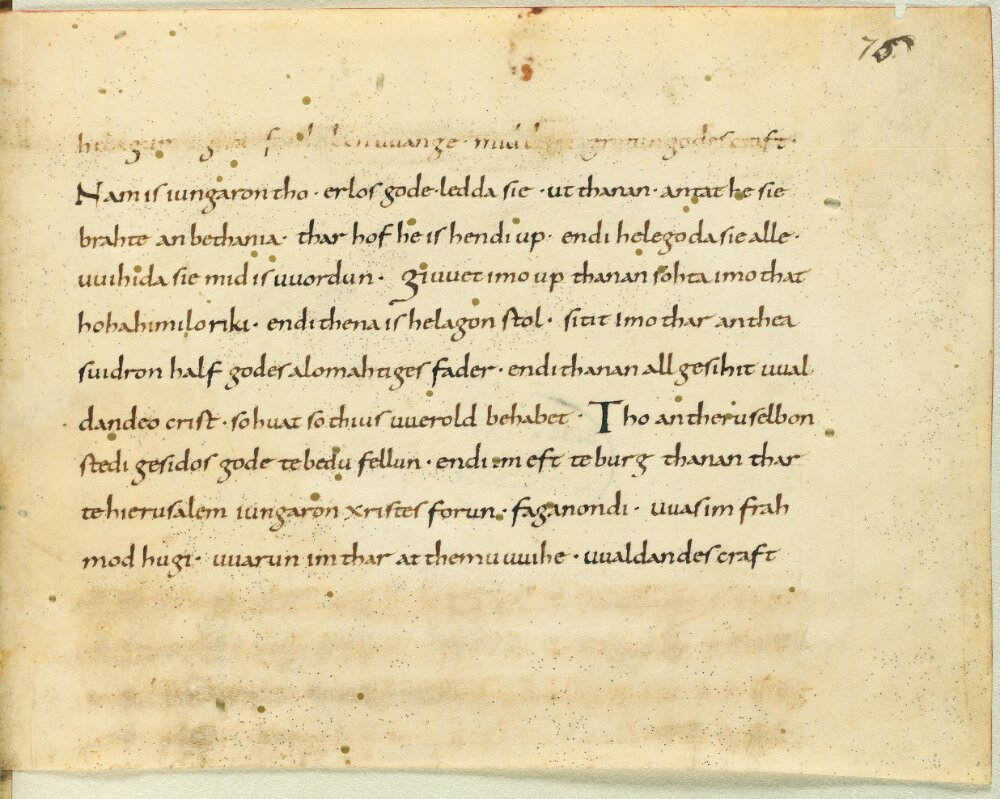 75
uuange · mid godes craft ·
Nam is iungaron tho · erlos gode · ledda sie · ut thanan · antat he sie
brahte an bethania · thar hof he is hendi up · endi helegoda sie alle ·
uuihida sie mid is uuordun · giuuet imo up thanan sohta imo that
hoha himilo riki · endi thena is helagon stol · sitit imo thar an thea
suidron half godes alomahtiges fader · endi thanan all gesihit uual
dandeo crist · so huat so thius uuerold behabet · Tho an theru selbon
stedi gesidos gode te bedu fellun · endi im eft te burg thanan thar
te hierusalem iungaron xristes forun · faganondi · uuas im frah
mod hugi · uuarun im thar at themu uuihe · uualdandes craft